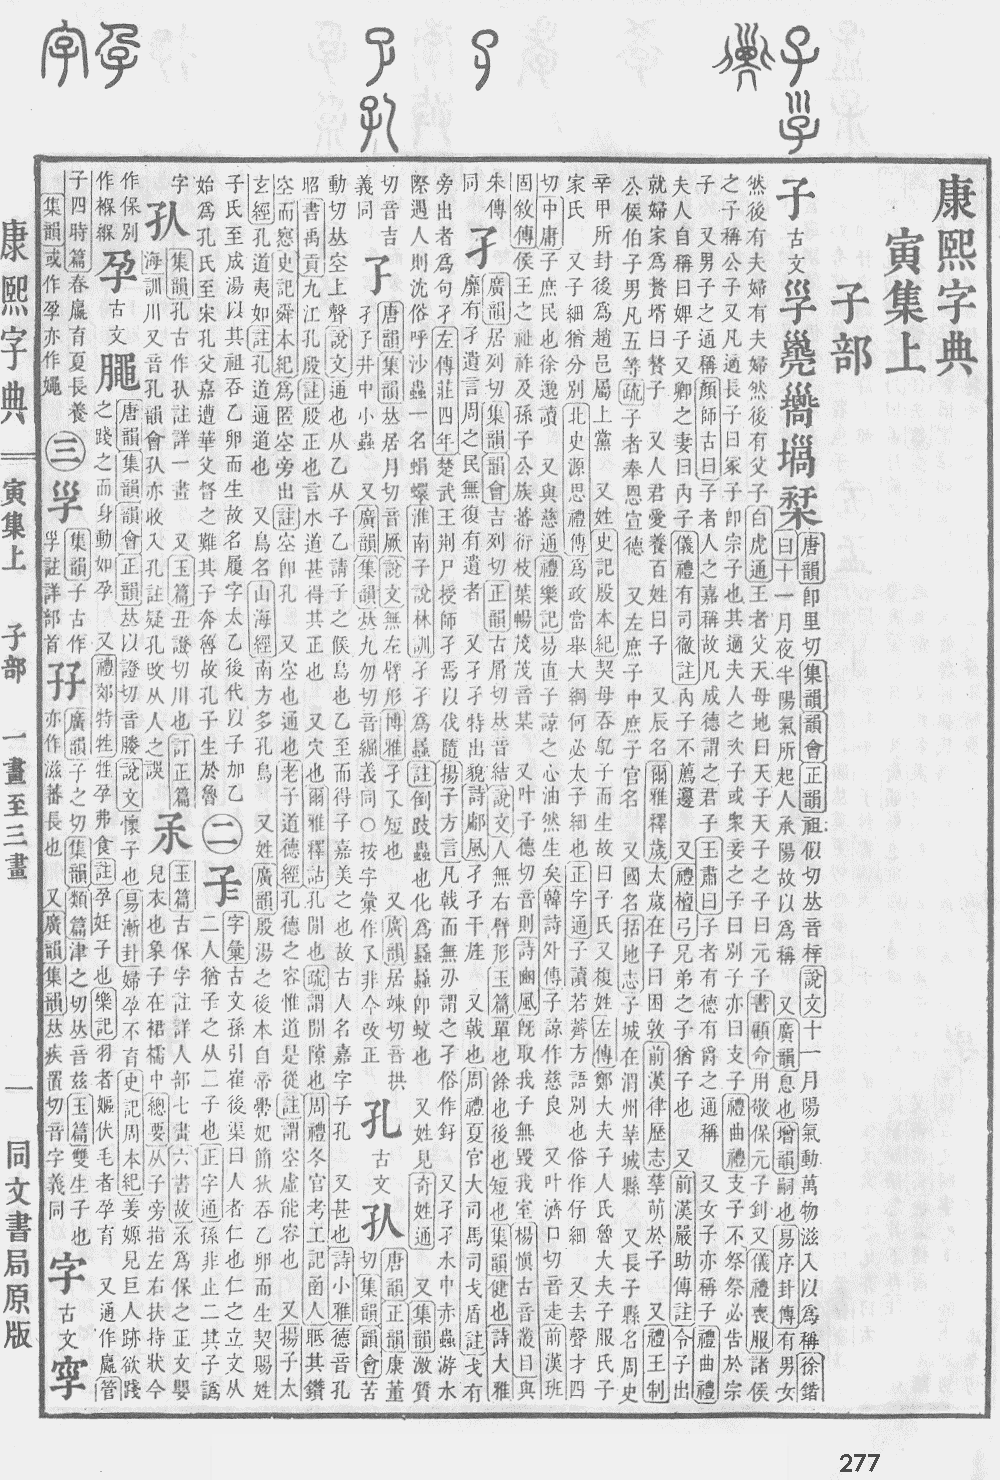 康熙字典
寅集上
子部
子古文㜽
唐韻卽里切集韻韻會正韻祖似切𠀤音梓說文十一月陽氣動萬物滋入以爲稱徐鍇
曰十一月夜半陽氣所起人承陽故以爲稱 又廣韻息也增韻嗣也易序卦傳有男女
然後有夫婦有夫婦然後有父子白虎通王者父天母地曰天子天子之子曰元子書顧命用敬保元子釗又儀禮喪服諸侯
之子稱公子又凡適長子曰冢子卽宗子也其適夫人之次子或衆妾之子曰別子亦曰支子禮曲禮支子不祭祭必告於宗
子 又男子之通稱顏師古曰子者人之嘉稱故凡成德謂之君子王肅曰子者有德有爵之通稱 又女子亦稱子禮曲禮
夫人自稱曰婢子又卿之妻曰內子儀禮有司徹註內子不薦籩 又禮檀弓兄弟之子猶子也 又前漢嚴助傳註令子出
就婦家爲贅壻曰贅子 又人君愛養百姓曰子 又辰名爾雅釋歲太歲在子曰困敦前漢律歷志孳萌於子 又禮王制
公侯伯子男凡五等疏子者奉恩宣德 又左庶子中庶子官名 又國名括地志子城在渭州莘城縣 又長子縣名周史
辛甲所封後爲趙邑屬上黨 又姓史記殷本紀契母吞鳦子而生故曰子氏又複姓左傳鄭大夫子人氏魯大夫子服氏子
家氏 又子細猶分別北史源思禮傳爲政當舉大綱何必太子細也正字通子讀若薺方語別也俗作仔細 又去聲才四
切中庸子庶民也徐邈讀 又與慈通禮樂記易直子諒之心油然生矣韓詩外傳子諒作慈良 又叶濟口切音走前漢班
固敘傳侯王之祉祚及孫子公族蕃衍枝葉暢茂茂音某 又叶子德切音則詩豳風旣取我子無毀我室楊愼古音叢曰與
朱傳同
孑
廣韻居列切集韻韻會吉列切正韻古屑切𠀤音結說文人無右臂形玉篇單也餘也後也短也集韻健也詩大雅
靡有孑遺言周之民無復有遺者 又孑孑特出貌詩鄘風孑孑干旄 又戟也周禮夏官大司馬司戈盾註戈有
旁出者爲句孑左傳莊四年楚武王荆尸授師孑焉以伐隨揚子方言凡戟而無刃謂之孑俗作釨 又孑孑水中赤蟲游水
際遇人則沈俗呼沙蟲一名蜎蠉淮南子說林訓孑孑爲蟁註倒跂蟲也化爲蟁蟁卽蚊也 又姓見奇姓通 又集韻激質
切音吉義同
孒
唐韻集韻𠀤居月切音厥說文無左臂形博雅孑孒短也 又廣韻居竦切音拱
孑孒井中小蟲 又廣韻集韻𠀤九勿切音䘿義同○按字彙作孓非今改正
孔古文㺬
唐韻正韻康董切集韻韻會苦
動切𠀤空上聲說文通也从乙从子乙請子之候鳥也乙至而得子嘉美之也故古人名嘉字子孔 又甚也詩小雅德音孔
昭書禹貢九江孔殷註殷正也言水道甚得其正也 又穴也爾雅釋詁孔閒也疏謂閒隙也周禮冬官考工記函人眡其鑽
空而惌史記舜本紀爲匿空旁出註空卽孔 又空也通也老子道德經孔德之容惟道是從註謂空虛能容也 又揚子太
玄經孔道夷如註孔道通道也 又鳥名山海經南方多孔鳥 又姓廣韻殷湯之後本自帝嚳妃簡狄吞乙卵而生契賜姓
子氏至成湯以其祖吞乙卵而生故名履字太乙後代以子加乙
始爲孔氏至宋孔父嘉遭華父督之難其子奔魯故孔子生於魯
二
二人猶子之从二子也正字通孫非止二其子譌
字彙古文孫引崔後渠曰人者仁也仁之立文从
集韻孔古作㺬註詳一畫 又玉篇丑證切川也訂正篇
海訓川又音孔韻會㺬亦收入孔註疑孔攺从人之誤
玉篇古保字註詳人部七畫六書故𤔍爲保之正文嬰
兒衣也象子在裙襦中總要从子旁指左右扶持狀今
作保別作褓緥
孕古文
唐韻集韻韻會正韻𠀤以證切音媵說文懷子也易漸卦婦孕不育史記周本紀姜嫄見巨人跡欲踐
之踐之而身動如孕 又禮郊特牲牲孕弗食註孕妊子也樂記羽者嫗伏毛者孕育 又通作䑏管
子四時篇春䑏育夏長養
集韻或作孕亦作䋲
三
集韻子古作
註詳部首
孖
廣韻子之切集韻類篇津之切𠀤音兹玉篇雙生子也
亦作滋蕃長也 又廣韻集韻𠀤疾置切音字義同
字古文
康熙字典 寅集上 子部 一畫至三畫 一 同文書局原版
277